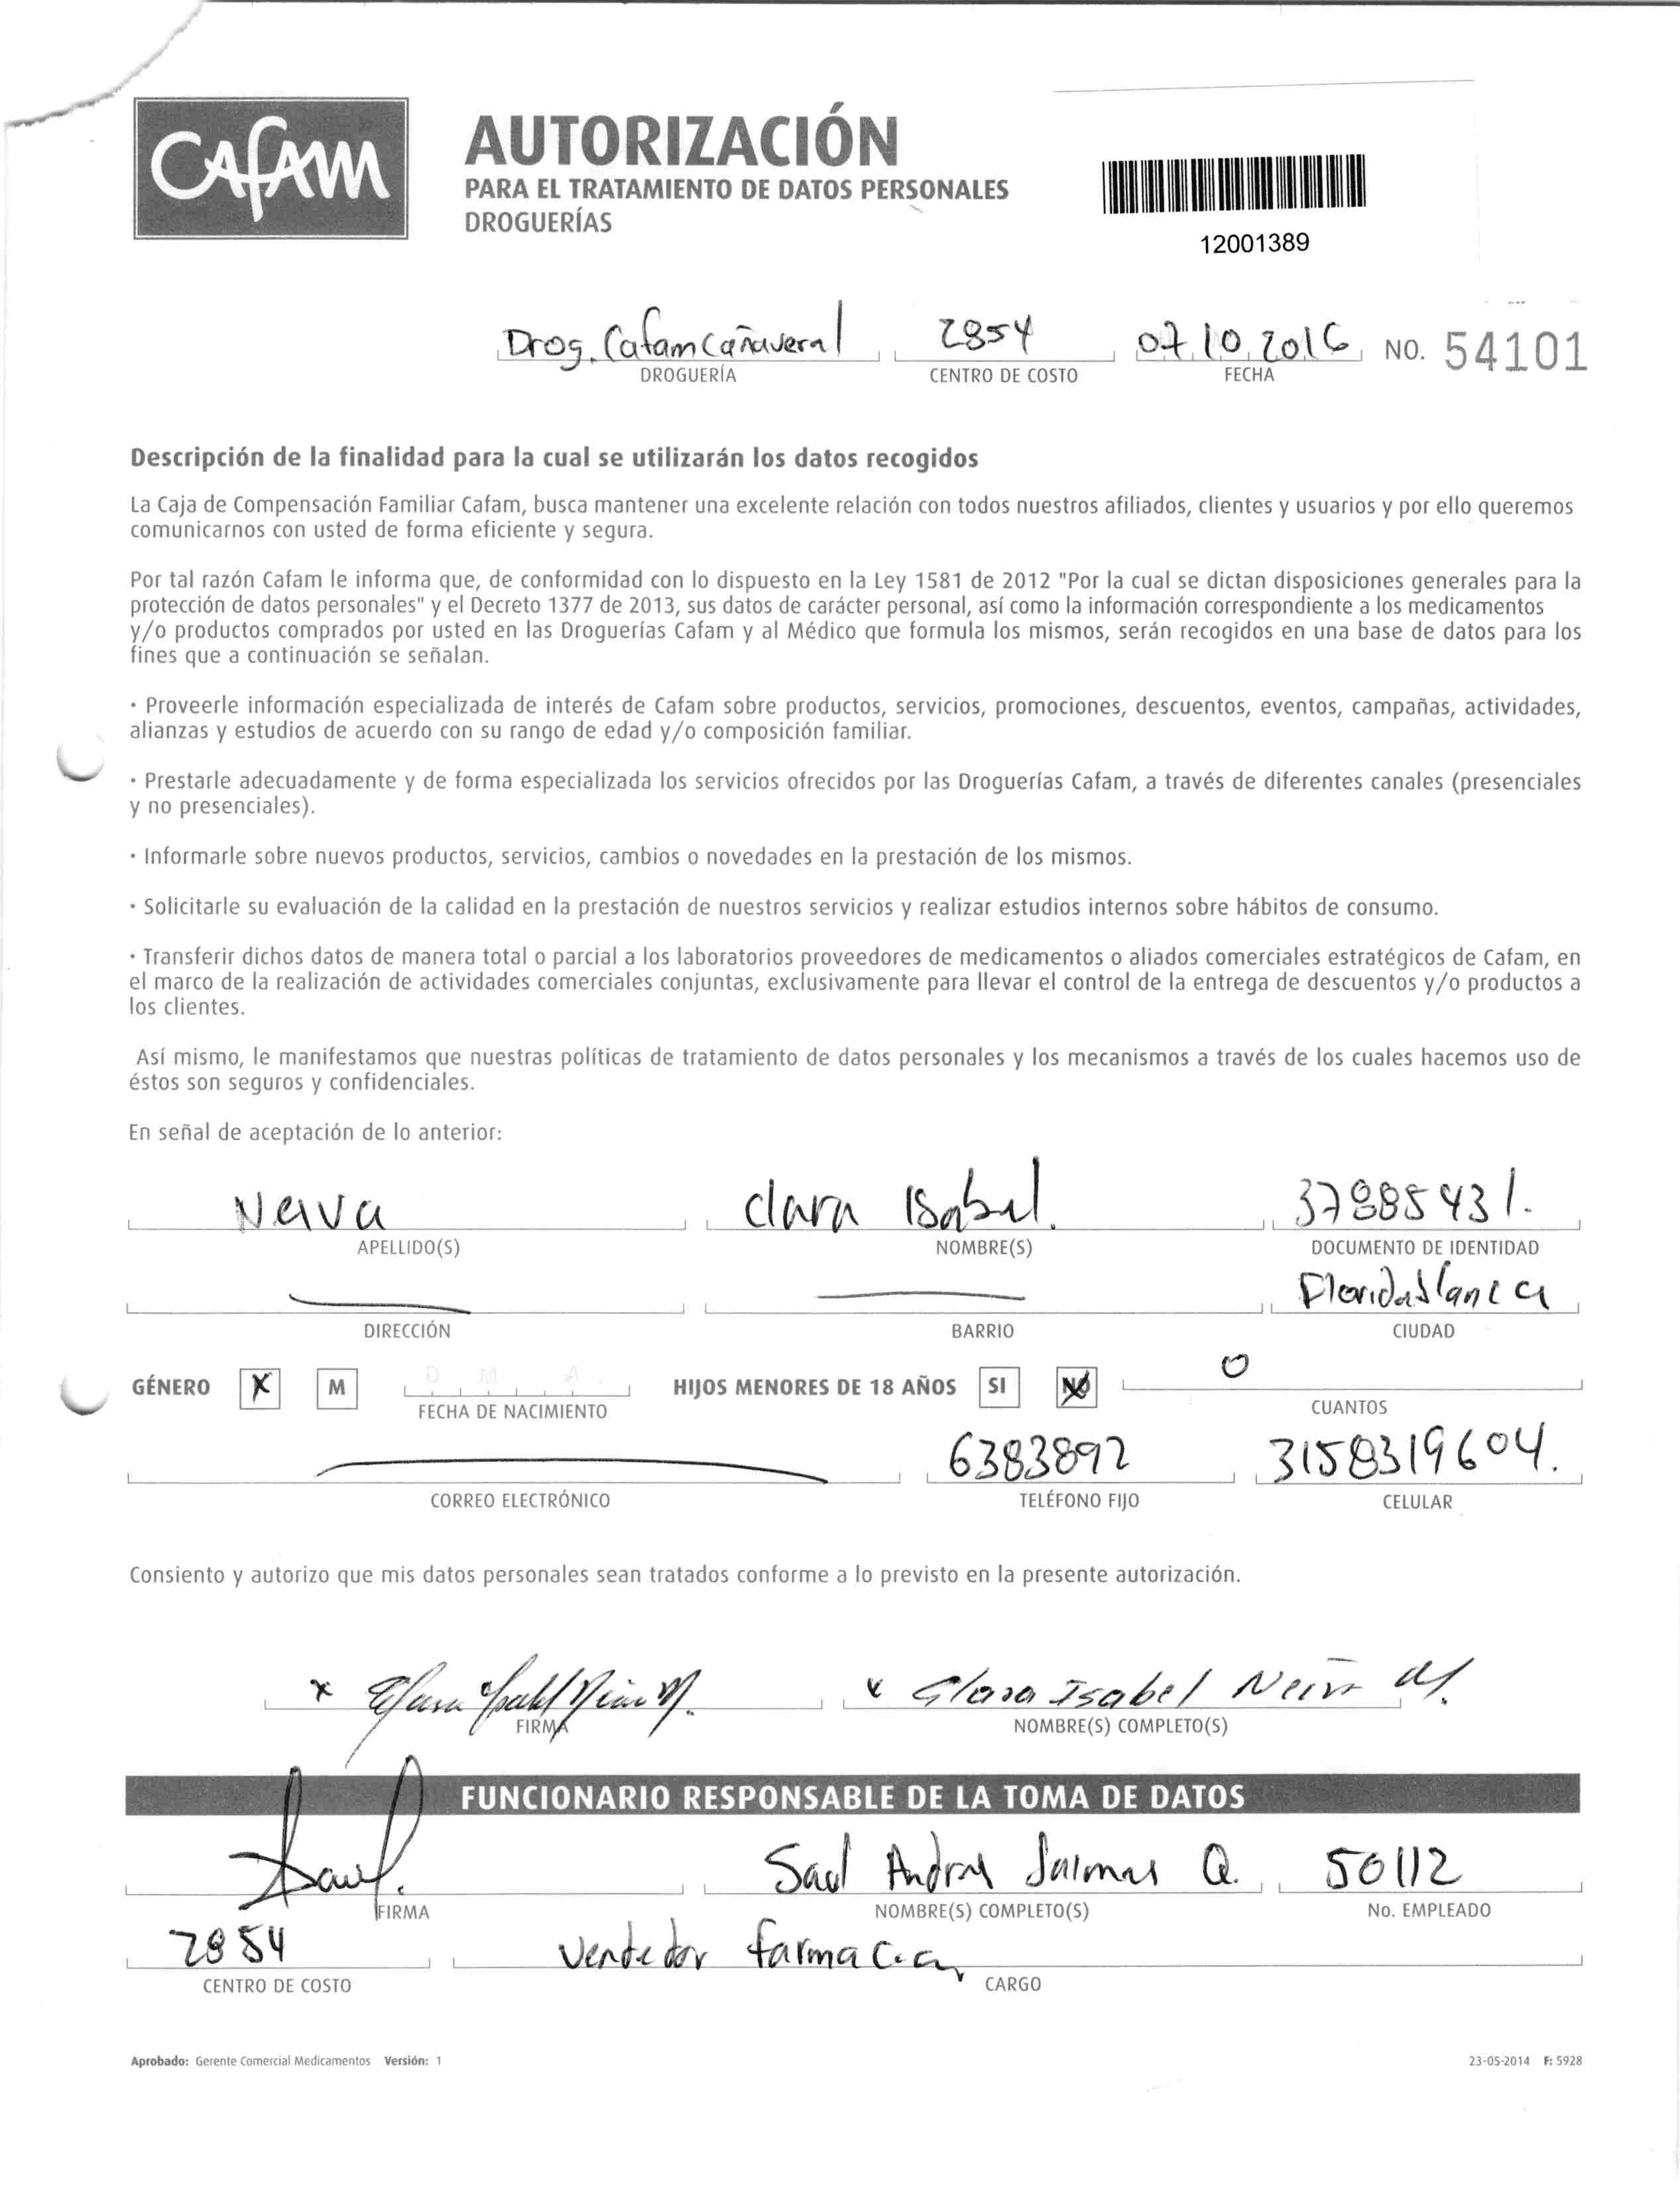 CAFAM
AUTORIZACIÓN
PARA EL TRATAMIENTO DE DATOS PERSONALES
DROGUERÍAS
12001389
Drog. Cafam Cañaveral 2854 07 10 2016 NO. 54101
DROGUERÍA CENTRO DE COSTO FECHA
Descripción de la finalidad para la cual se utilizarán los datos recogidos
La Caja de Compensación Familiar Cafam, busca mantener una excelente relación con todos nuestros afiliados, clientes y usuarios y por ello queremos
comunicarnos con usted de forma eficiente y segura.
Por tal razón Cafam le informa que, de conformidad con lo dispuesto en la Ley 1581 de 2012 "Por la cual se dictan disposiciones generales para la
protección de datos personales" y el Decreto 1377 de 2013, sus datos de carácter personal, así como la información correspondiente a los medicamentos
y/o productos comprados por usted en las Droguerías Cafam y al Médico que formula los mismos, serán recogidos en una base de datos para los
fines que a continuación se señalan.
· Proveerle información especializada de interés de Cafam sobre productos, servicios, promociones, descuentos, eventos, campañas, actividades,
alianzas y estudios de acuerdo con su rango de edad y/o composición familiar.
· Prestarle adecuadamente y de forma especializada los servicios ofrecidos por las Droguerías Cafam, a través de diferentes canales (presenciales
y no presenciales).
· Informarle sobre nuevos productos, servicios, cambios o novedades en la prestación de los mismos.
· Solicitarle su evaluación de la calidad en la prestación de nuestros servicios y realizar estudios internos sobre hábitos de consumo.
· Transferir dichos datos de manera total o parcial a los laboratorios proveedores de medicamentos o aliados comerciales estratégicos de Cafam, en
el marco de la realización de actividades comerciales conjuntas, exclusivamente para llevar el control de la entrega de descuentos y/o productos a
los clientes.
Así mismo, le manifestamos que nuestras políticas de tratamiento de datos personales y los mecanismos a través de los cuales hacemos uso de
éstos son seguros y confidenciales.
En señal de aceptación de lo anterior:
Neiva clara Isabel. 37885431.
APELLIDO(S) NOMBRE(S) DOCUMENTO DE IDENTIDAD
Floridablanca
DIRECCIÓN BARRIO CIUDAD
GÉNERO X M D M A HIJOS MENORES DE 18 AÑOS SI NO 0
FECHA DE NACIMIENTO CUANTOS
6383892 3158319604.
CORREO ELECTRÓNICO TELÉFONO FIJO CELULAR
Consiento y autorizo que mis datos personales sean tratados conforme a lo previsto en la presente autorización.
x Clara Isabel Neiva M. x Clara Isabel Neiva M.
FIRMA NOMBRE(S) COMPLETO(S)
FUNCIONARIO RESPONSABLE DE LA TOMA DE DATOS
Saul. Saul Andres Jaimes Q. 50112
FIRMA NOMBRE(S) COMPLETO(S) No. EMPLEADO
2854 Vendedor farmacia
CENTRO DE COSTO CARGO
Aprobado: Gerente Comercial Medicamentos Versión: 1 23-05-2014 F: 5928